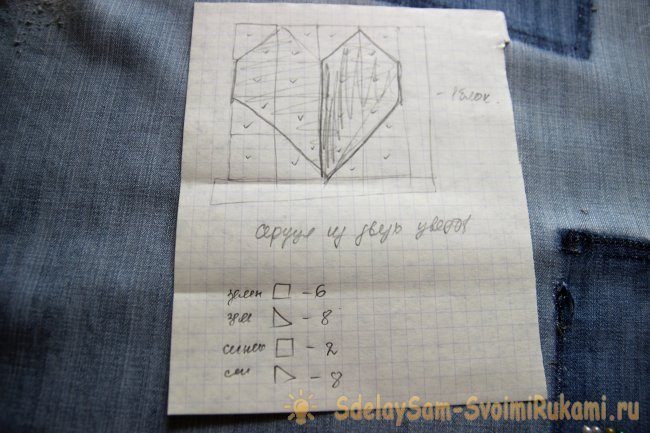 - 1 блок.
сердце из двух цветов
зелен □ - 6
зел ◺ - 8
синих □ - 2
син ▷ - 8
SdelaySam-SvoimiRukami.ru